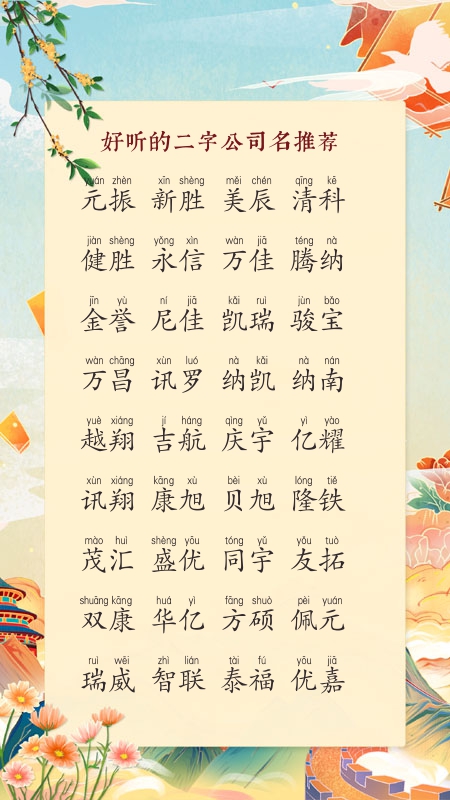 好听的二字公司名推荐
yuán zhèn xīn shèng měi chén qīng kē
元振 新胜 美辰 清科
jiàn shèng yǒng xìn wàn jiā téng nà
健胜 永信 万佳 腾纳
jīn yù ní jiā kǎi ruì jùn bǎo
金誉 尼佳 凯瑞 骏宝
wàn chāng xùn luó nà kǎi nà nán
万昌 讯罗 纳凯 纳南
yuè xiáng jí háng qìng yǔ yì yào
越翔 吉航 庆宇 亿耀
xùn xiáng kāng xù bèi xù lóng tiě
讯翔 康旭 贝旭 隆铁
mào huì shèng yōu tóng yǔ yǒu tuò
茂汇 盛优 同宇 友拓
shuāng kāng huá yì fāng shuò pèi yuán
双康 华亿 方硕 佩元
ruì wēi zhì lián tài fú yōu jiā
瑞威 智联 泰福 优嘉